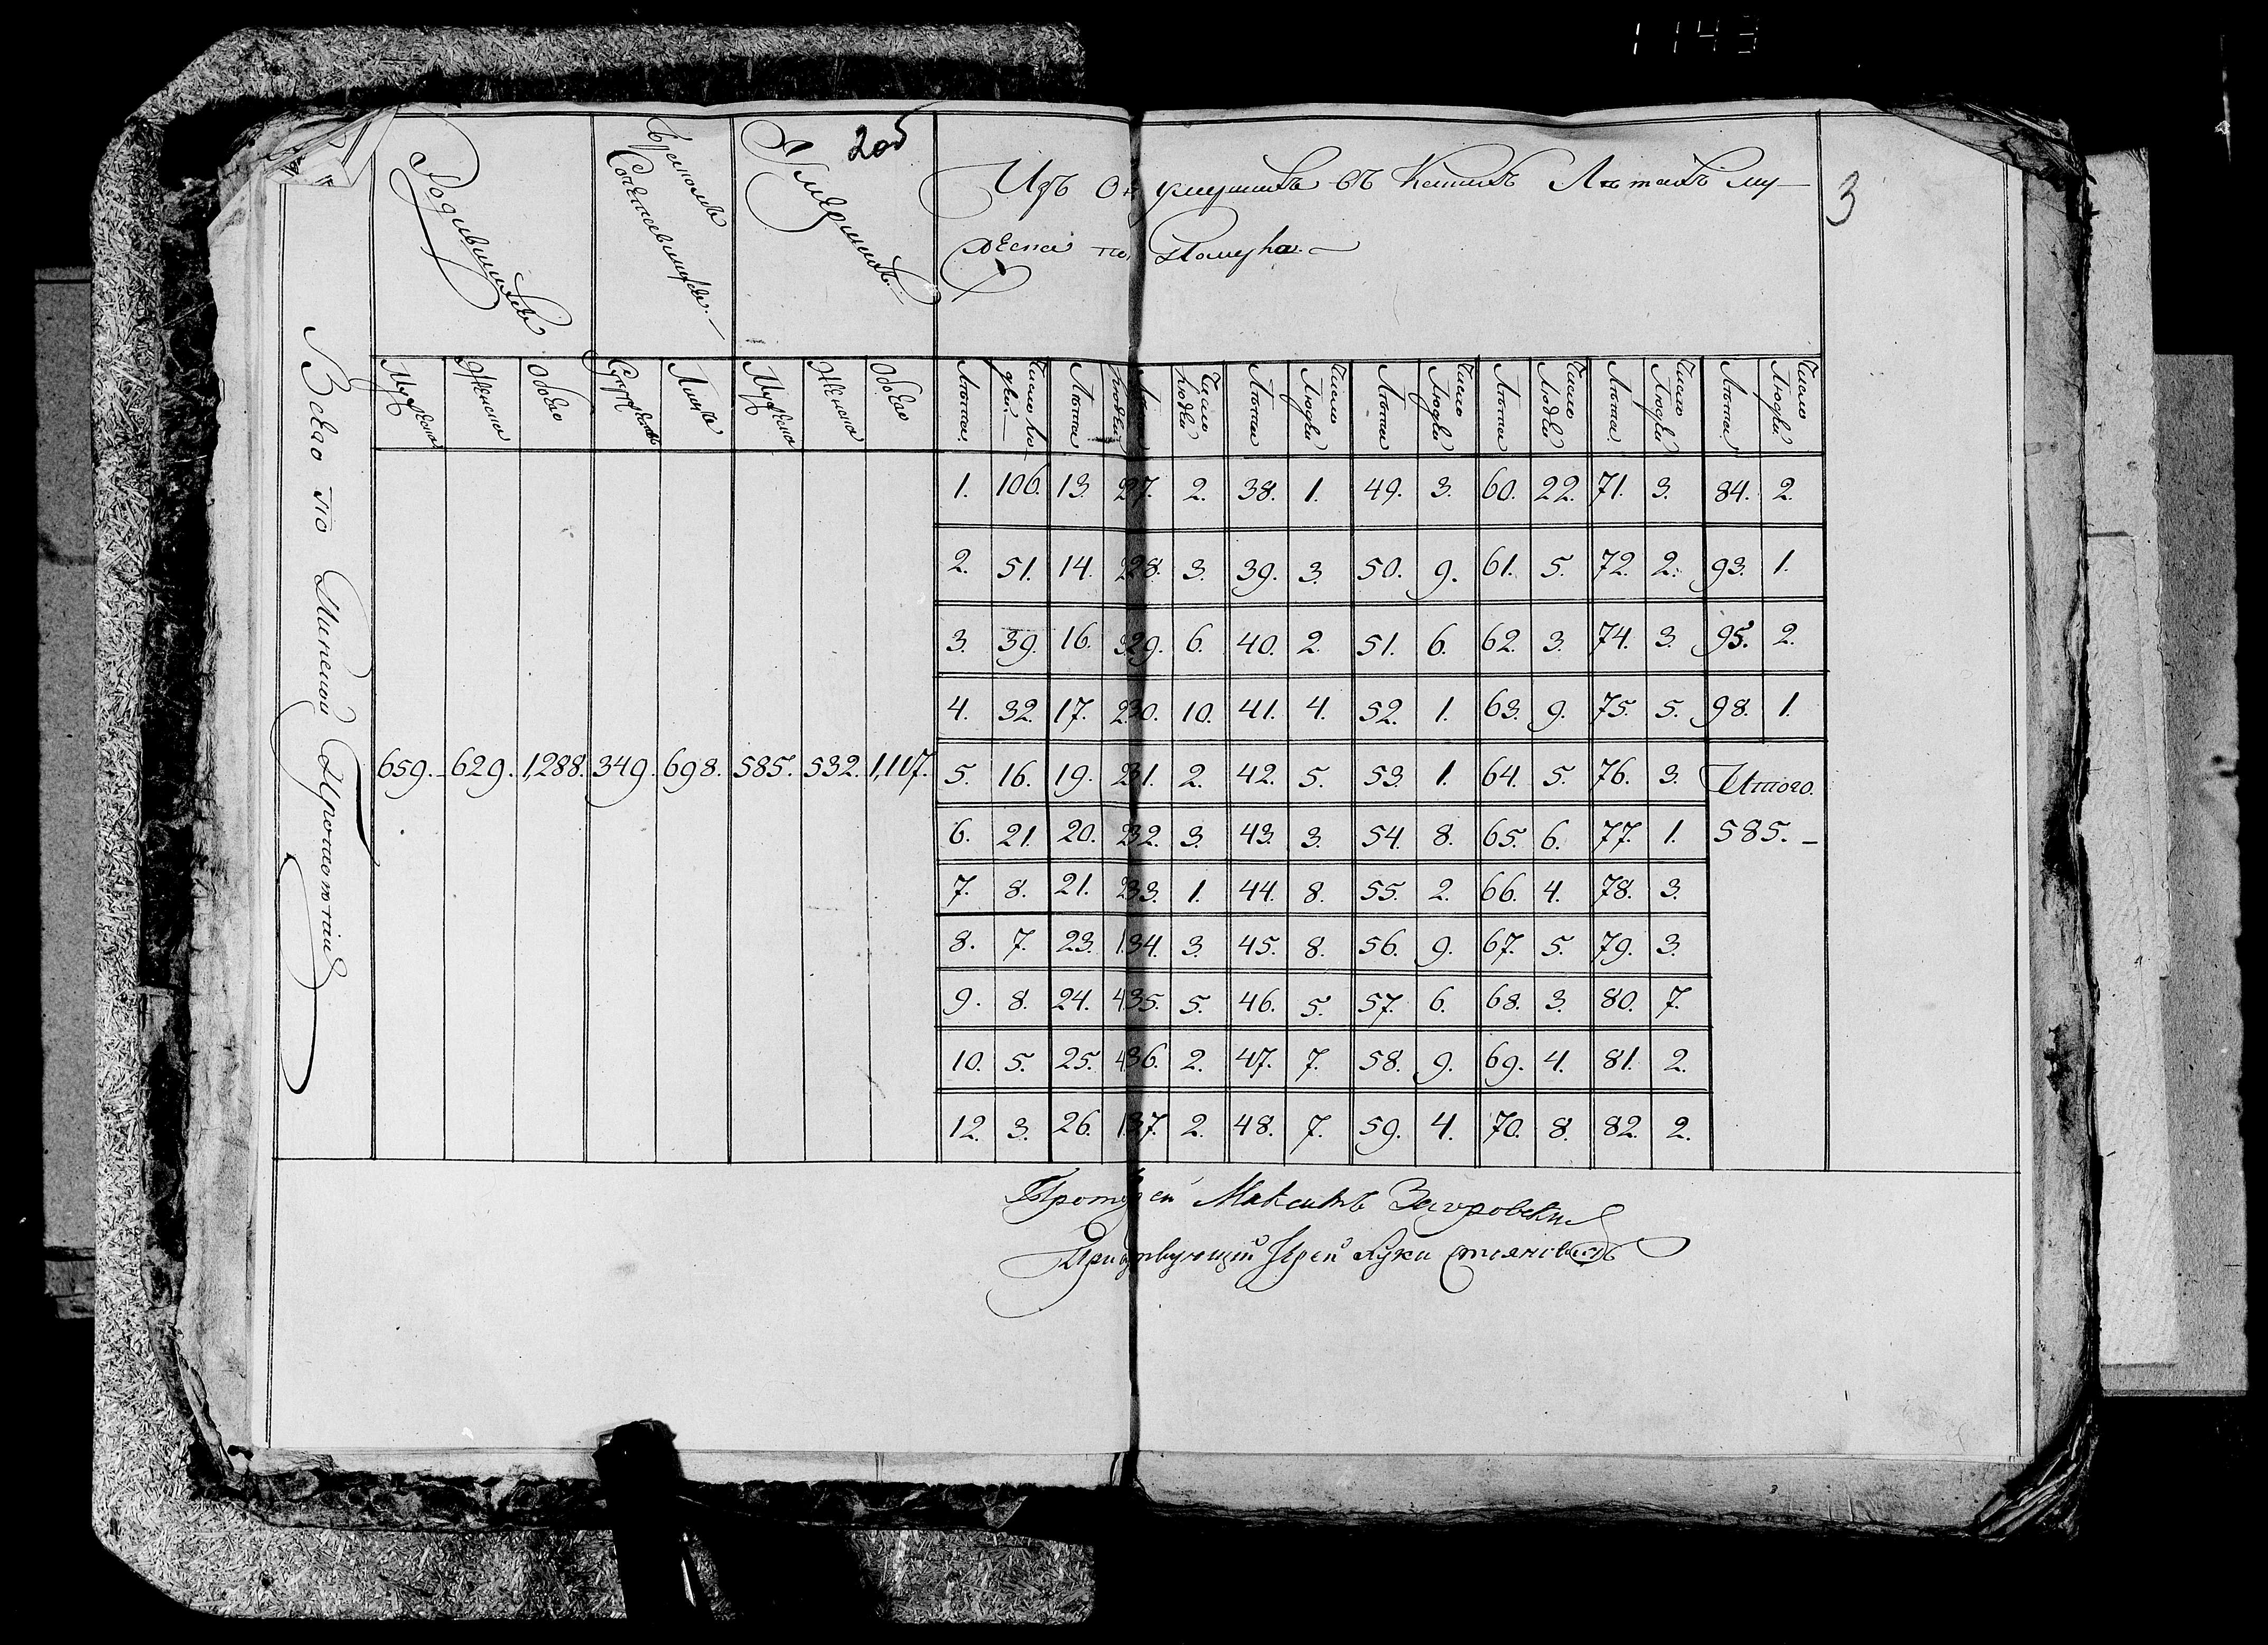 1143
205
3
Родившихся
Бракомъ Сочетавшихся.
Умершихъ.
Изъ Оныхъ умершихъ въ какихъ Лѣтахъ му-
жеска полу
Всего по Липской Протопопіи
Мужеска Женска Обоего Супружествъ Лица Мужеска Женска Обоего
Лѣта Число людей Лѣта людей Число людей Лѣта Число Людей Лѣта Число Людей Лѣта Число Людей Лѣта Число Людей Лѣта Число Людей
1. 106. 13. 2 27. 2. 38. 1. 49. 3. 60. 22. 71. 3. 84. 2.
2. 51. 14. 2 28. 3. 39. 3. 50. 9. 61. 5. 72. 2. 93. 1.
3. 39. 16. 3 29. 6. 40. 2. 51. 6. 62. 3. 74. 3. 95. 2.
4. 32. 17. 2 30. 10. 41. 4. 52. 1. 63. 9. 75. 5. 98. 1.
659. 629. 1,288. 349. 698. 585. 532. 1,117. 5. 16. 19. 2 31. 2. 42. 5. 53. 1. 64. 5. 76. 3. Итого.
6. 21. 20. 2 32. 3. 43. 3. 54. 8. 65. 6. 77. 1. 585.
7. 8. 21. 2 33. 1. 44. 8. 55. 2. 66. 4. 78. 3.
8. 7. 23. 1. 34. 3. 45. 8. 56. 9. 67. 5. 79. 3.
9. 8. 24. 4 35. 5. 46. 5. 57. 6. 68. 3. 80. 7.
10. 5. 25. 4 36. 2. 47. 7. 58. 9. 69. 4. 81. 2.
12. 3. 26. 1 37. 2. 48. 7. 59. 4. 70. 8. 82. 2.
Максимъ Загоровский
Ірей Лука